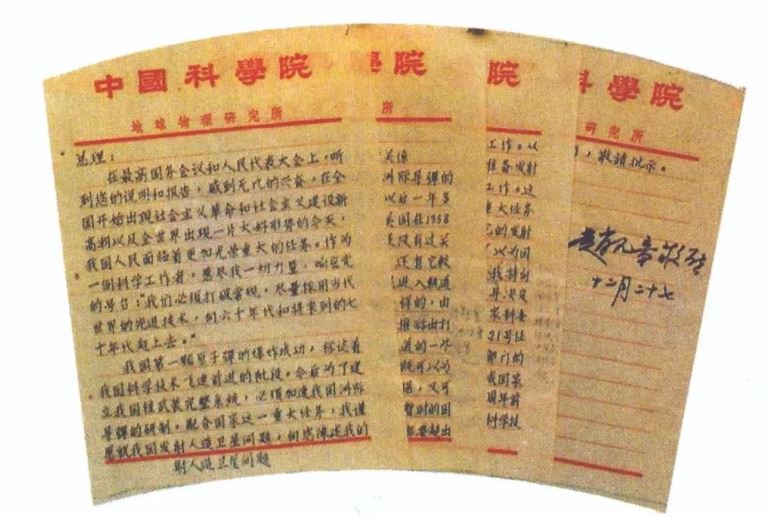 中國科學院
地球物理研究所
总理：
在最高国务会议和人民代表大会上，听
到您的说明和报告，感到无比的兴奋，在全
国开始出现社会主义革命和社会主义建设新
高潮以及全世界出现一片大好形势的今天，
我国人民面临着更加光荣重大的任务。作为
一个科学工作者，愿尽我一切力量，响应党
的号召："我们必须打破常规，尽量采用当代
世界的先进技术，向六十年代和将来到的七
十年代赶上去。"
我国第一颗原子弹的爆炸成功，标志着
我国科学技术飞速前进的阶段。今后为了建
立我国核武装完整系统，必须加速我国洲际
导弹的研制，配合国家这一重大任务，我谨
就我国发射人造卫星问题，向您陈述我的
射人造卫星问题
院
所
关系
洲际导弹的
以后一年多
美国在1958
没有过关
还有它较
进入轨道
样的，由
道的一些
既可以为
据，又可
暂时的困
需要超出
院
工作。从
准备发射
工作。过
重大任务
的发射
以为国
我特向
早决定
家科委
21号任
部门的
我国第
周年前
科学技
科學院
研究所
，敬請批示。
赵九章敬上
十二月二十七